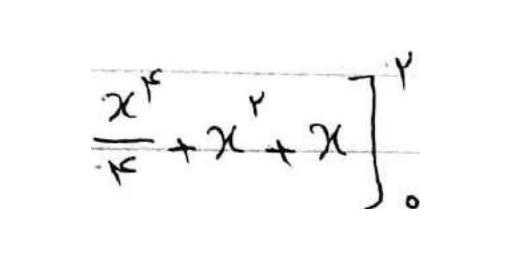 x^۴/۴ + x^۲ + x]_۰^۲